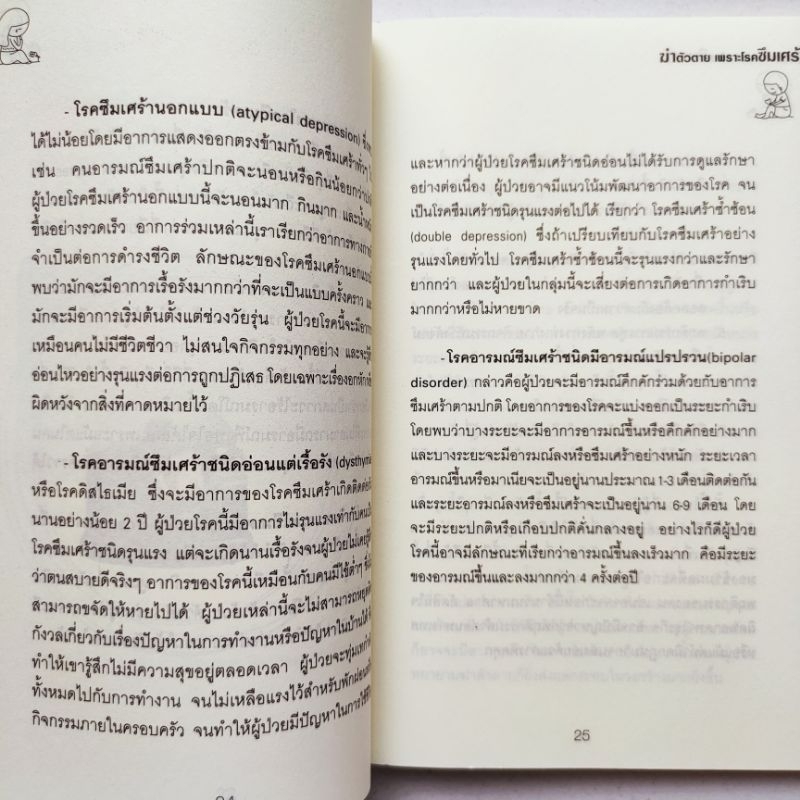 - โรคซึมเศร้านอกแบบ (atypical depression)
ได้ไม่น้อยโดยมีอาการแสดงออกตรงข้ามกับโรคซึมเศร้าทั่วๆ
เช่น คนอารมณ์ซึมเศร้าปกติจะนอนหรือกินน้อยกว่า
ผู้ป่วยโรคซึมเศร้านอกแบบนี้จะนอนมาก กินมาก และ
ขึ้นอย่างรวดเร็ว อาการร่วมเหล่านี้เราเรียกว่าอาการทาง
จำเป็นต่อการดำรงชีวิต ลักษณะของโรคซึมเศร้านอก
พบว่ามักจะมีอาการเรื้อรังมากกว่าที่จะเป็นแบบครั้งคราว
มักจะมีอาการเริ่มต้นตั้งแต่ช่วงวัยรุ่น ผู้ป่วยโรคนี้จะมี
เหมือนคนไม่มีชีวิตชีวา ไม่สนใจกิจกรรมทุกอย่าง และ
อ่อนไหวอย่างรุนแรงต่อการถูกปฏิเสธ โดยเฉพาะเรื่องอกหัก
ผิดหวังจากสิ่งที่คาดหมายไว้
- โรคอารมณ์ซึมเศร้าชนิดอ่อนแต่เรื้อรัง
หรือโรคดิสไธเมีย ซึ่งจะมีอาการของโรคซึมเศร้าเกิด
นานอย่างน้อย 2 ปี ผู้ป่วยโรคนี้มีอาการไม่รุนแรงเท่ากับ
โรคซึมเศร้าชนิดรุนแรง แต่จะเกิดนานเรื้อรังจนผู้ป่วย
ว่าตนสบายดีจริงๆ อาการของโรคนี้เหมือนกับคนมีไข้ต่ำๆ
สามารถขจัดให้หายไปได้ ผู้ป่วยเหล่านี้จะไม่สามารถ
กังวลเกี่ยวกับเรื่องปัญหาในการทำงานหรือปัญหาในบ้านได้
ทำให้เขารู้สึกไม่มีความสุขอยู่ตลอดเวลา ผู้ป่วยจะทุ่มเท
ทั้งหมดไปกับการทำงาน จนไม่เหลือแรงไว้สำหรับพักผ่อน
กิจกรรมภายในครอบครัว จนทำให้ผู้ป่วยมีปัญหาในการ
ฆ่าตัวตาย เพราะโรคซึมเศร้า
และหากว่าผู้ป่วยโรคซึมเศร้าชนิดอ่อนไม่ได้รับการดูแลรักษา
อย่างต่อเนื่อง ผู้ป่วยอาจมีแนวโน้มพัฒนาอาการของโรค จน
เป็นโรคซึมเศร้าชนิดรุนแรงต่อไปได้ เรียกว่า โรคซึมเศร้าซ้ำซ้อน
(double depression) ซึ่งถ้าเปรียบเทียบกับโรคซึมเศร้าอย่าง
รุนแรงโดยทั่วไป โรคซึมเศร้าซ้ำซ้อนนี้จะรุนแรงกว่าและรักษา
ยากกว่า และผู้ป่วยในกลุ่มนี้จะเสี่ยงต่อการเกิดอาการกำเริบ
มากกว่าหรือไม่หายขาด
- โรคอารมณ์ซึมเศร้าชนิดมีอารมณ์แปรปรวน(bipolar
disorder) กล่าวคือผู้ป่วยจะมีอารมณ์คึกคักร่วมด้วยกับอาการ
ซึมเศร้าตามปกติ โดยอาการของโรคจะแบ่งออกเป็นระยะกำเริบ
โดยพบว่าบางระยะจะมีอาการอารมณ์ขึ้นหรือคึกคักอย่างมาก
และบางระยะจะมีอารมณ์ลงหรือซึมเศร้าอย่างหนัก ระยะเวลา
อารมณ์ขึ้นหรือมาเนียจะเป็นอยู่นานประมาณ 1-3 เดือนติดต่อกัน
และระยะอารมณ์ลงหรือซึมเศร้าจะเป็นอยู่นาน 6-9 เดือน โดย
จะมีระยะปกติหรือเกือบปกติคั่นกลางอยู่ อย่างไรก็ดีผู้ป่วย
โรคนี้อาจมีลักษณะที่เรียกว่าอารมณ์ขึ้นลงเร็วมาก คือมีระยะ
ของอารมณ์ขึ้นและลงมากกว่า 4 ครั้งต่อปี
25